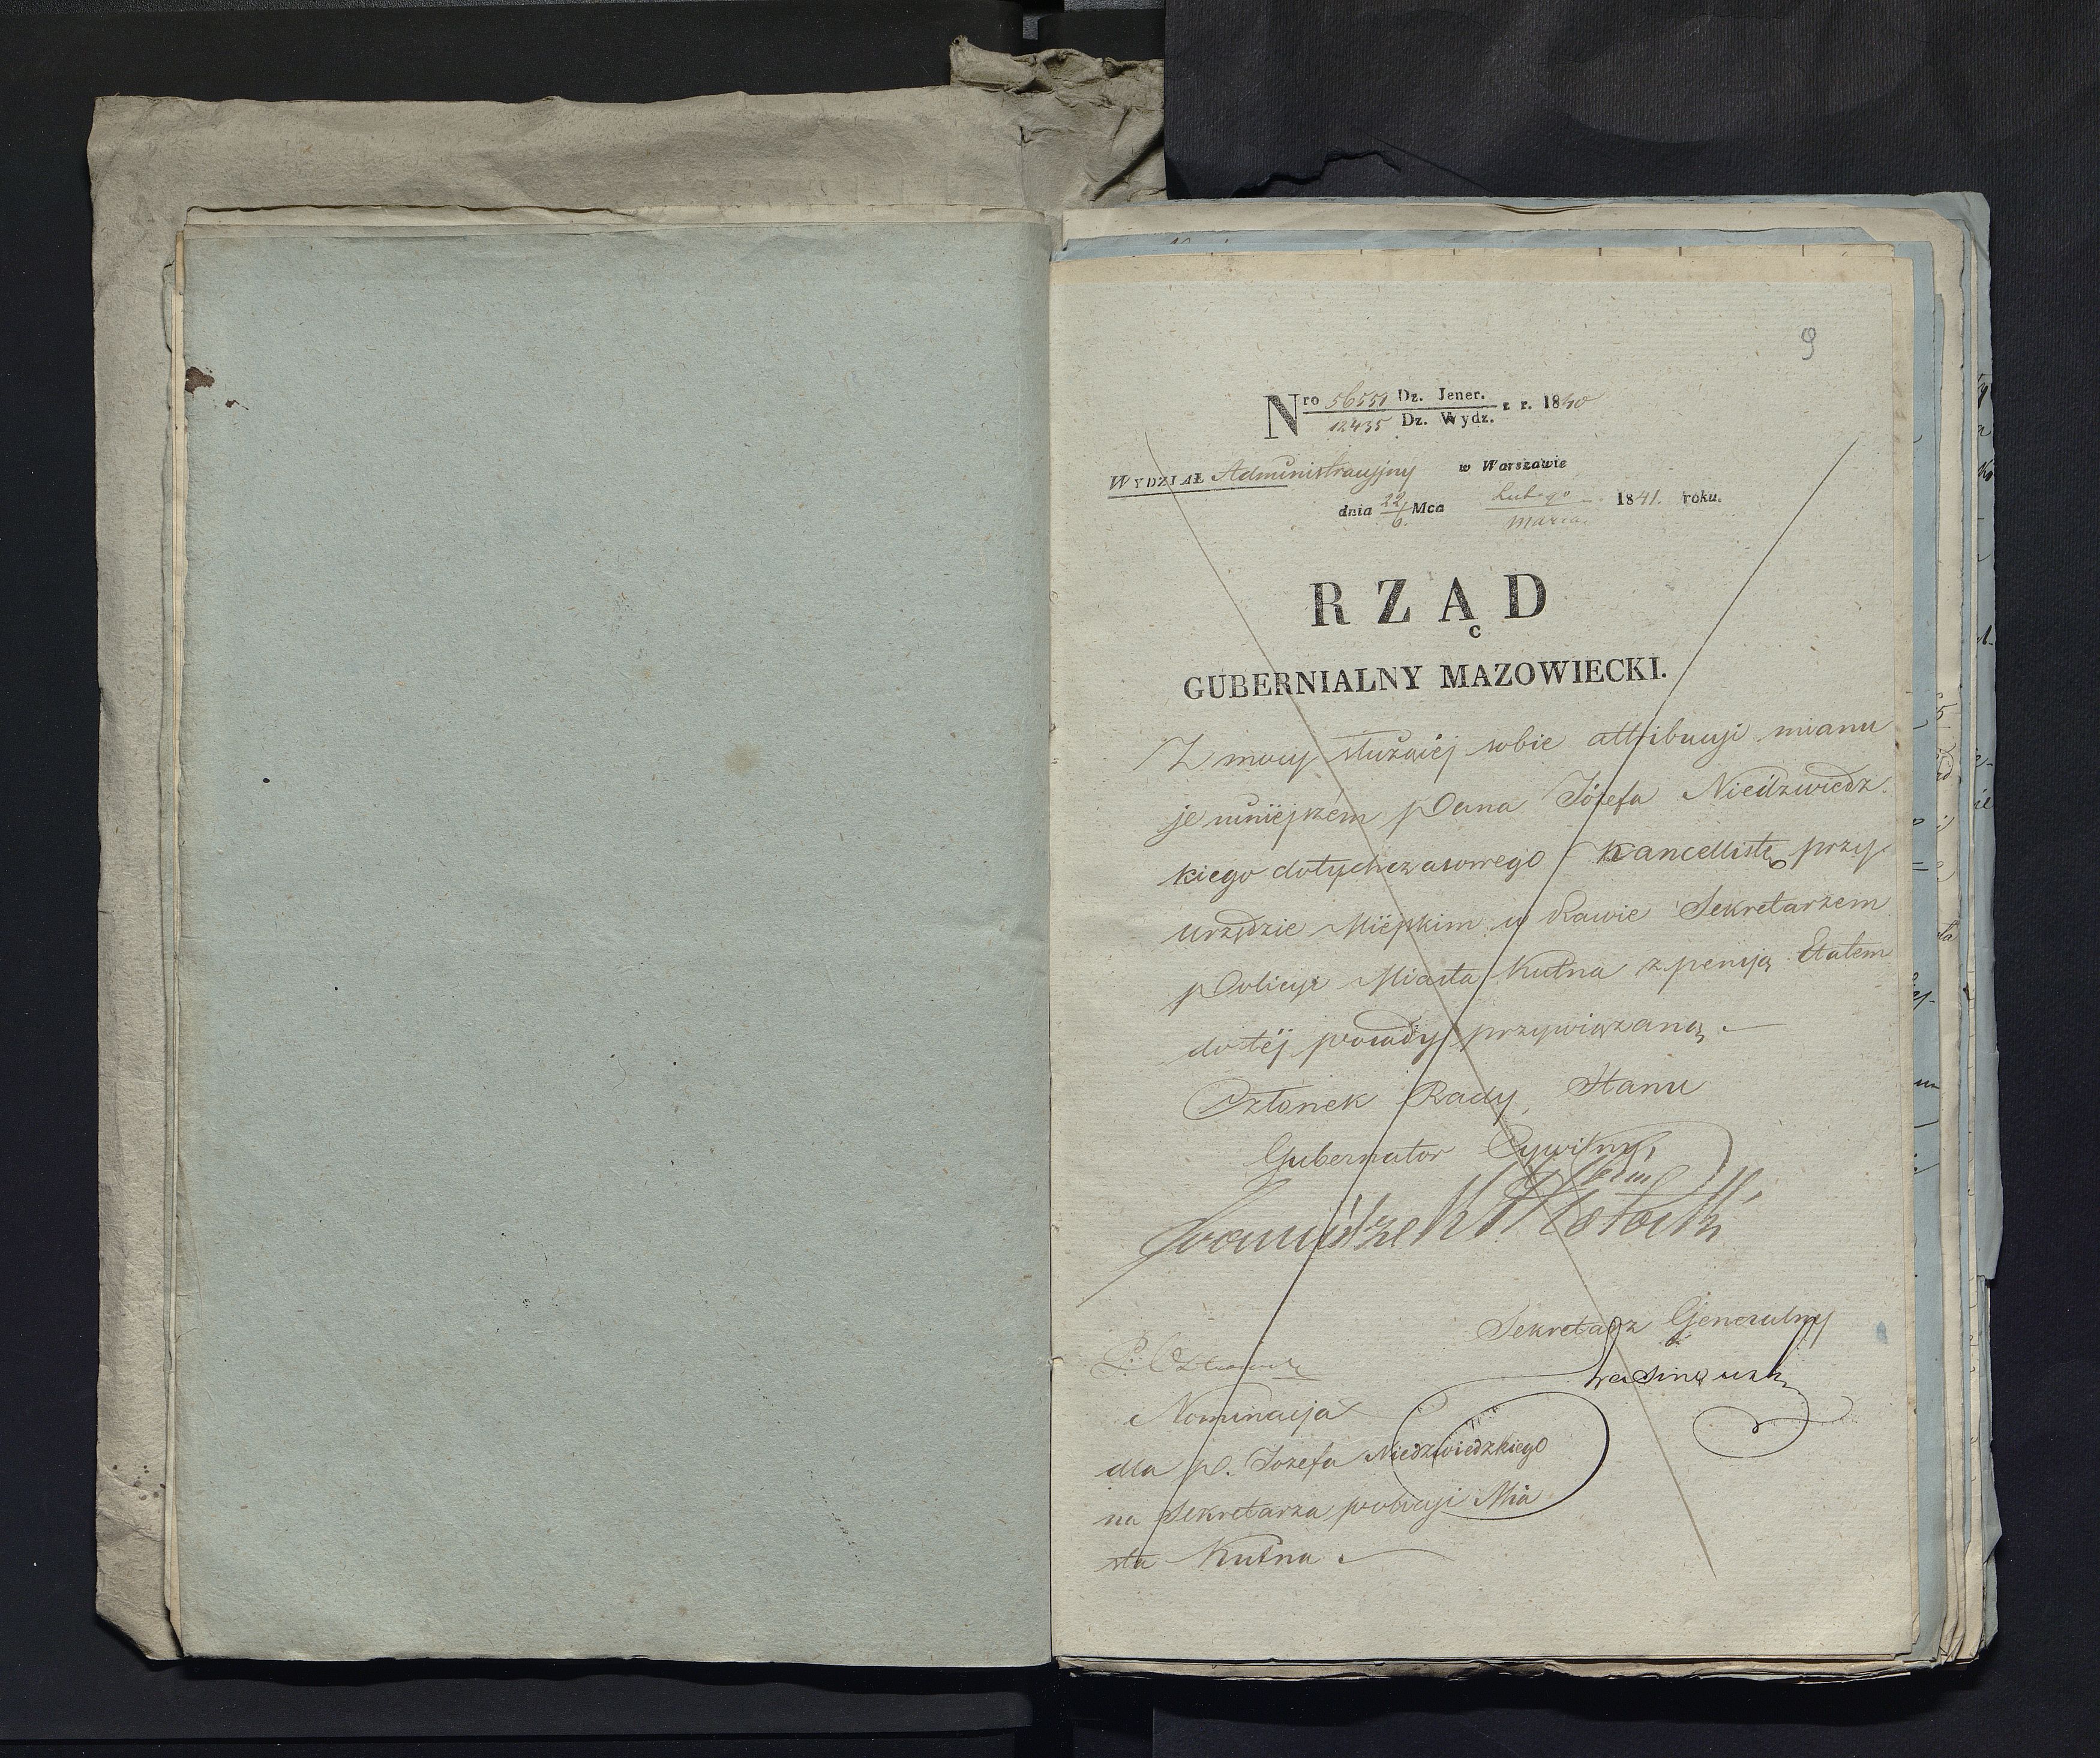 9
Nro 56551 Dz. Jener. z r. 1840
12435 Dz. Wydz.
WYDZIAŁ Administracyjny w Warszawie
dnia 22/6 Mca Lutego/Marca 1841. roku.
RZĄD
GUBERNIALNY MAZOWIECKI.
Z mocy służącéj sobie attribucyi mianu
je niniejszém Pana Józefa Niedzwiedz
kiego dotychczasowego Kancellistę przy
Urzędzie Miejskim w Rawie Sekretarzem
Policyi Miasta Kutna z pensyą Etatem
do téj posady przywiązaną.
Członek Rady Stanu
Gubernator Cywilny,
Sekretarz Generalny
Nominacja
dla P. Jozefa Niedzwiedzkiego
na Sekretarza policyi Mia
sta Kutna.